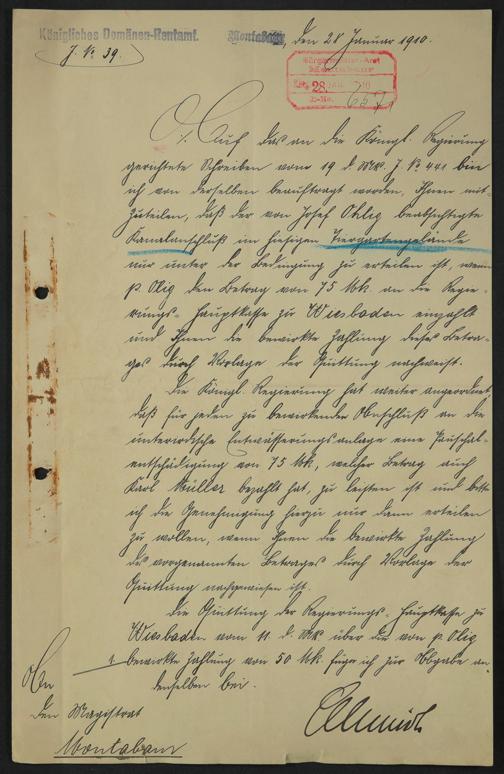 Königliches Domänen-Rentamt.
J. № 39.
Montabaur, den 28 Januar 1910.
Bürgermeister-Amt
Montabaur
28 JAN. 1910
J.-No. 657
Auf das an die Königl. Regierung
gerichtete Schreiben vom 19 d. Mts. J. № 441 bin
ich von derselben beauftragt worden, Ihnen mit-
zuteilen, daß der von Josef Ohlig beabsichtigte
Kanalanschluß im hiesigen Tiergartengelände
nur unter der Bedingung zu erteilen ist, wenn
p. Olig den Betrag von 75 Mk. an die Regie-
rungs-Hauptkasse zu Wiesbaden einzahlt
und Ihnen die bewirkte Zahlung dieses Betra-
ges durch Vorlage der Quittung nachweist.
Die Königl. Regierung hat weiter angeordnet,
daß für jeden zu bewirkenden Anschluß an die
unterirdische Entwässerungsanlage eine Pauschal-
entschädigung von 75 Mk, welcher Betrag auch
Karl Müller bezahlt hat, zu leisten ist und bitte
ich die Genehmigung hierzu nur dann erteilen
zu wollen, wenn Ihnen die bewirkte Zahlung
des vorgenannten Betrages durch Vorlage der
Quittung nachgewiesen ist.
Die Quittung der Regierungs-Hauptkasse zu
Wiesbaden vom 11. d. Mts über die von p. Olig
1. bewirkte Zahlung von 50 Mk. füge ich zur Abgabe an
denselben bei.
An
den Magistrat
Montabaur